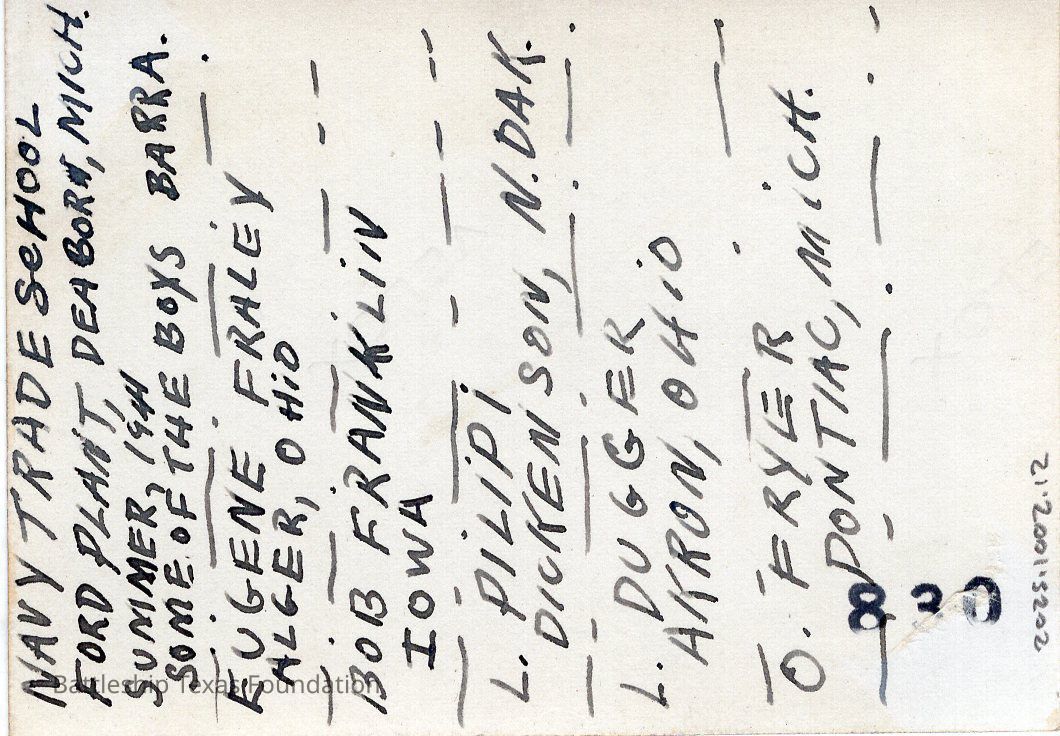 NAVY TRADE SCHOOL
FORD PLANT, DEABORN, MICH.
SUMMER, 1941
SOME OF THE BOYS BARRA.
EUGENE FRALEY
ALGER, OHIO
BOB FRANKLIN
IOWA
L. PILIPI
DICKENSON, N.DAK.
L. DUGGER
AKRON, OHIO
O. FRYER
PONTIAC, MICH.
830
2025.1002.12
Battleship Texas Foundation